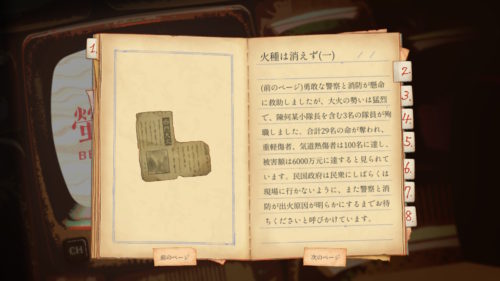 1.
火種は消えず(一)
(前のページ)勇敢な警察と消防が懸命
に救助しましたが、大火の勢いは猛烈
で、陳何某小隊長を含む3名の隊員が殉
職しました。合計29名の命が奪われ、
重軽傷者、気道熱傷者は100名に達し、
被害額は6000万元に達すると見られて
います。民国政府は民衆にしばらくは
現場に行かないように、また警察と消
防が出火原因が明らかにするまでお待
ちくださいと呼びかけています。
2.
3.
4.
5.
6.
7.
8.
前のページ
次のページ
CH